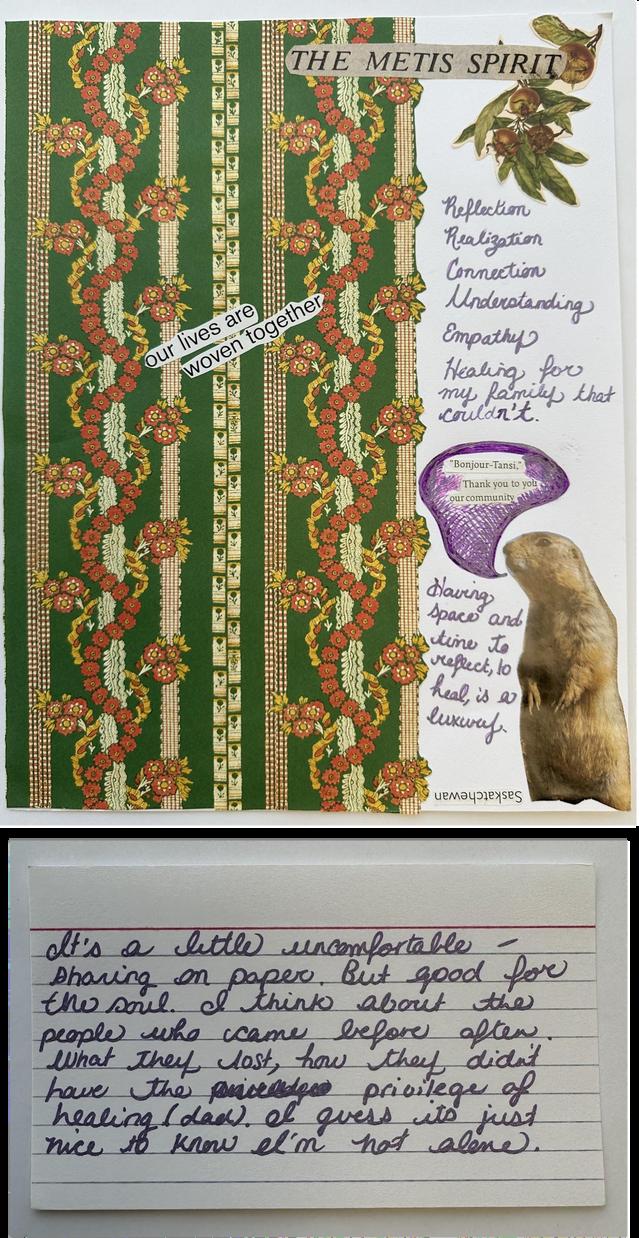 THE METIS SPIRIT
Reflection
Realization
Connection
Understanding
Empathy
Healing for
my family that
couldn't.
our lives are
woven together
"Bonjour-Tansi,"
Thank you to you
our community
Having
space and
time to
reflect, to
heal, is a
luxury.
Saskatchewan
It's a little uncomfortable –
sharing on paper. But good for
the soul. I think about the
people who came before often.
What they lost, how they didn't
have the privilege of
healing (dad). I guess its just
nice to know I'm not alone.